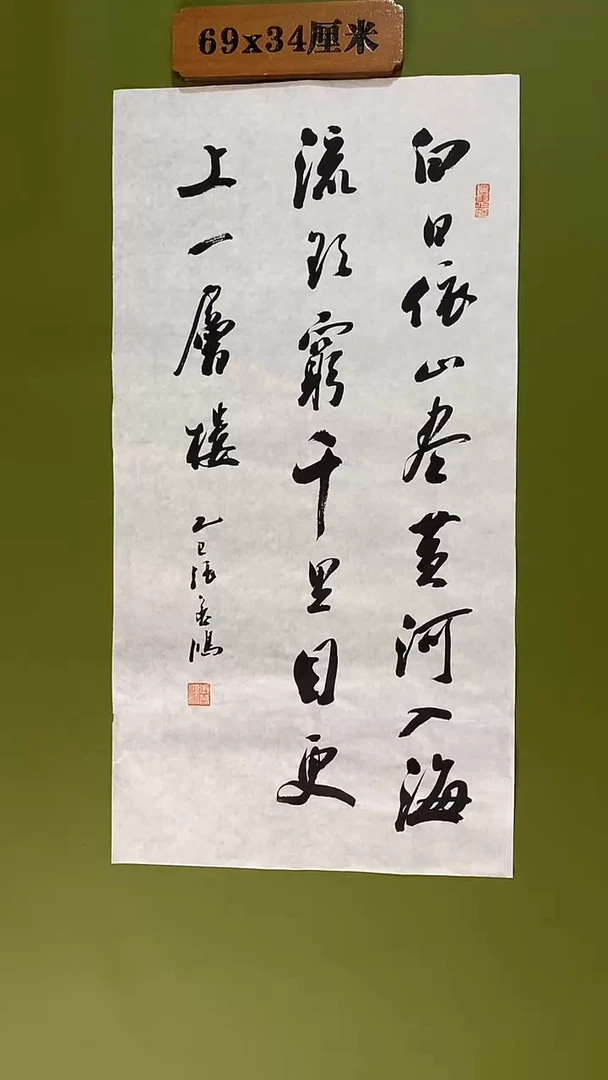 69x34厘米
白日依山尽黄河入海
流欲窮千里目更
上一層樓
乙巳张